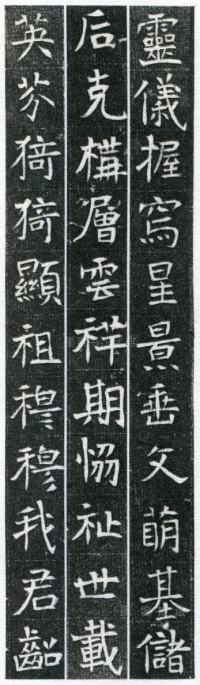 靈儀握寫星景垂文萠基儲
后克構層雲祥期恊祉世載
英芬猗猗顯祖穆穆我君齠